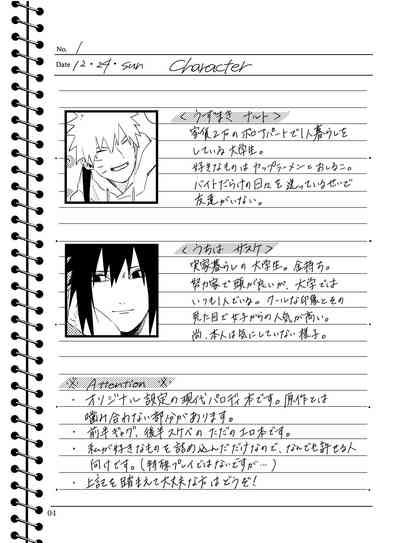 No. 1
Date 12・24・sun Character
<うずまき ナルト>
家賃2万のボロアパートで1人暮らしを
している大学生。
好きなものはカップラーメンとおしるこ。
バイトだらけの日々を送っているせいで
友達がいない。
<うちは サスケ>
実家暮らしの大学生。金持ち。
努力家で頭が良いが、大学では
いつも1人でいる。クールな印象とその
見た目で女子からの人気が高い。
尚、本人は気にしていない様子。
※ Attention ※
・オリジナル設定の現代パロディ本です。原作とは
噛み合わない部分があります。
・前半ギャグ、後半スケベのただのエロ本です。
・私が好きなものを詰め込んだだけなので、なんでも許せる人
向けです。(特殊プレイではないですが…)
・上記を踏まえて大丈夫な方はどうぞ!
04